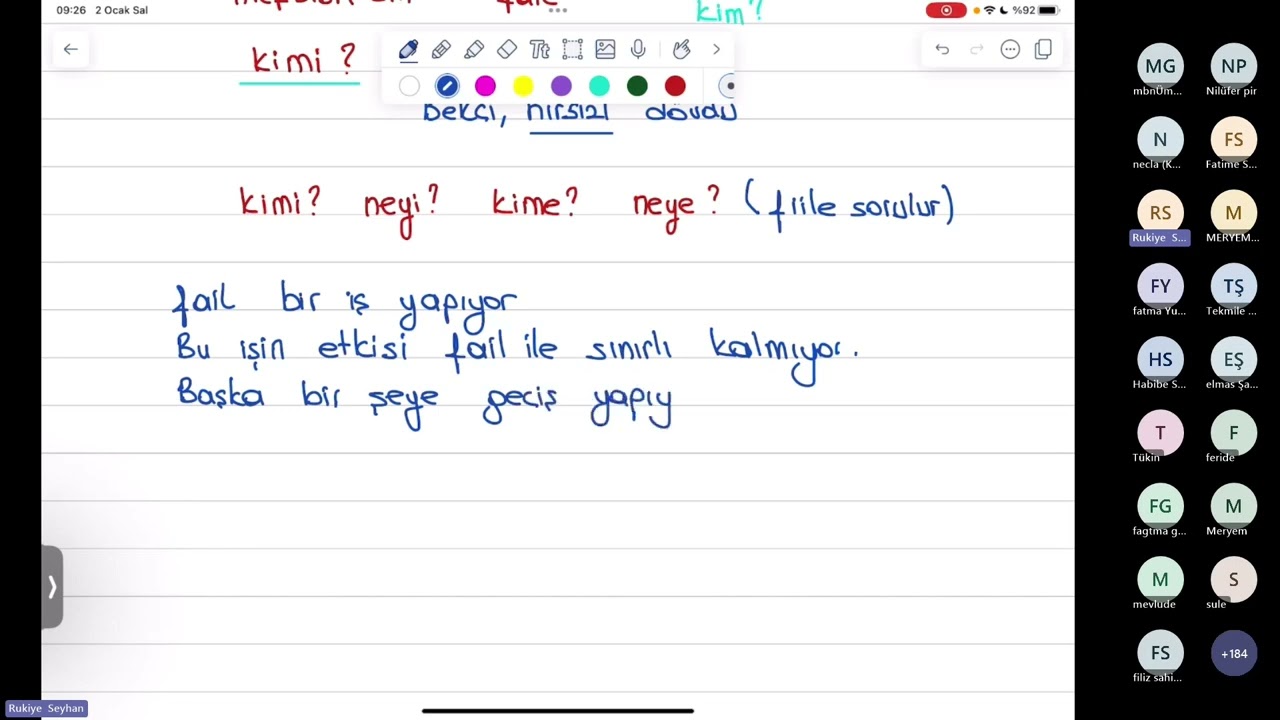 09:26 2 Ocak Sal
%92
kim?
kimi?
Tt
bekçi, hırsızı dövdü
kimi? neyi? kime? neye? (fiile sorulur)
fail bir iş yapıyor
Bu işin etkisi fail ile sınırlı kalmıyor.
Başka bir şeye geçiş yapıy
MG NP
mbnÜm... Nilüfer pir
N FS
necla (K... Fatime S...
RS M
Rukiye S... MERYEM...
FY TŞ
fatma Yu... Tekmile ...
HS EŞ
Habibe S... elmas Şa...
T F
Tükin feride
FG M
fagtma g... Meryem
M S
mevlüde sule
FS +184
filiz sahi...
Rukiye Seyhan